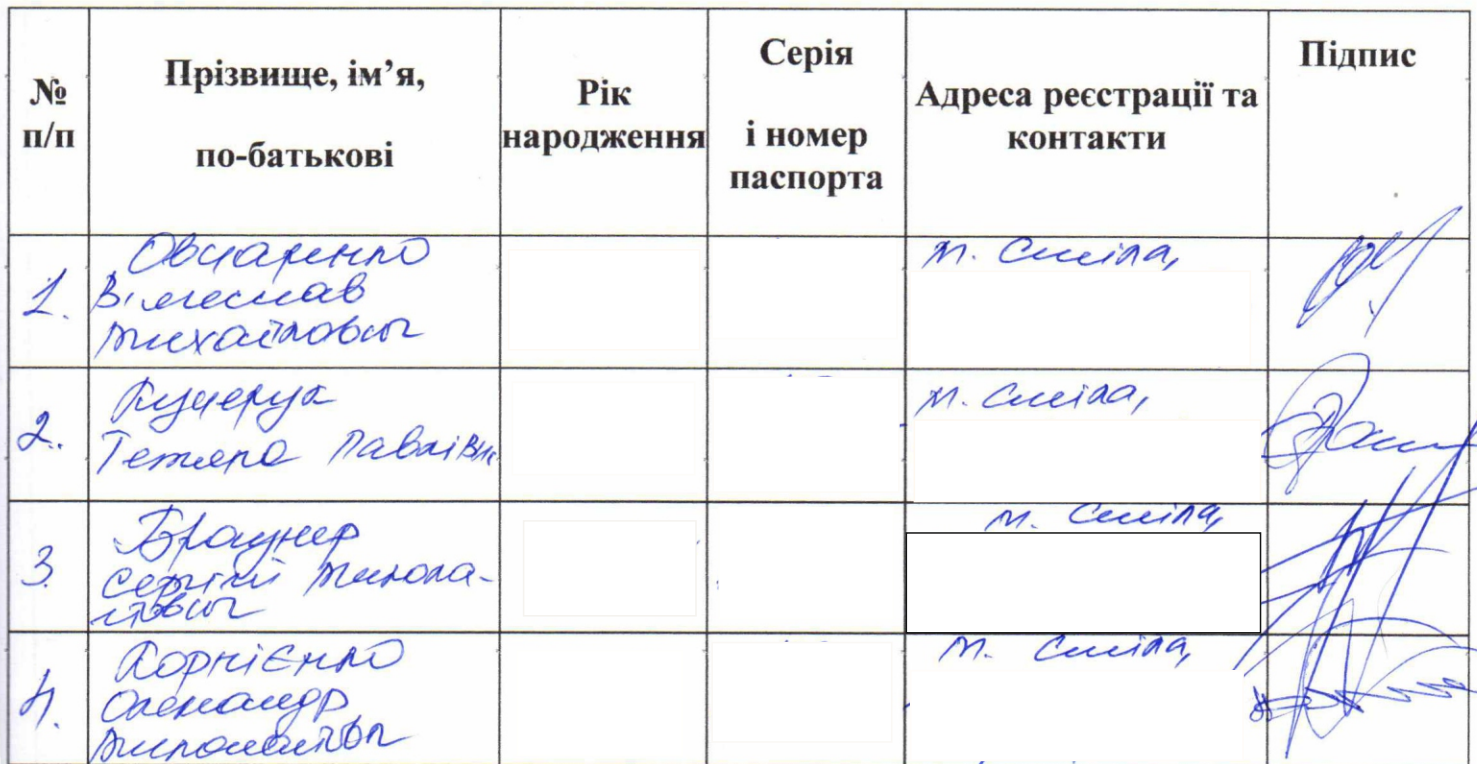 № п/п
Прізвище, ім’я,
по-батькові
Рік
народження
Серія
і номер
паспорта
Адреса реєстрації та
контакти
Підпис
1.
Овчаренко
Вячеслав
Михайлович
м. Сміла,
2.
Кучерук
Тетяна Павлівна
м. Сміла,
3.
Браунер
Сергій Микола-
йович
м. Сміла,
4.
Корнієнко
Олександр
м. Сміла,